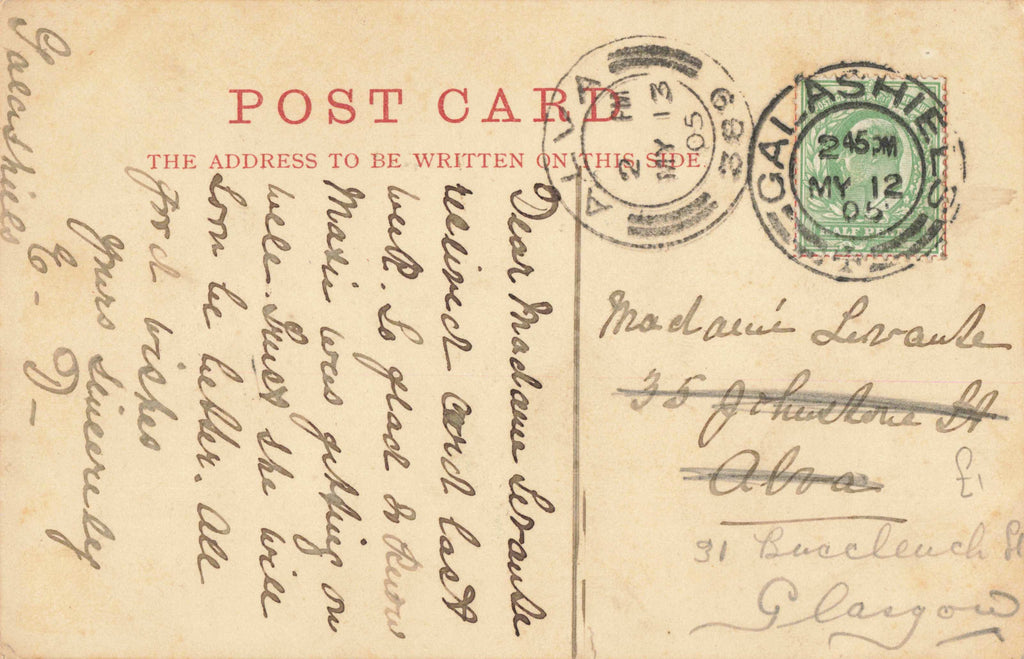 POST CARD
THE ADDRESS TO BE WRITTEN ON THIS SIDE
ALVA
2 PM
MY 13
05
389
GALASHIELS
2 45 PM
MY 12
05
HALF PE
Dear Madame Levante
recieved card last
week. So glad to know
Maxie was getting on
well. Guess she will
soon be better. All
good wishes
Yours Sincereley
E - D -
Galashiels
Madame Levante
35 Johnstone St
Alva
£1
31 Buccleuch St
Glasgow